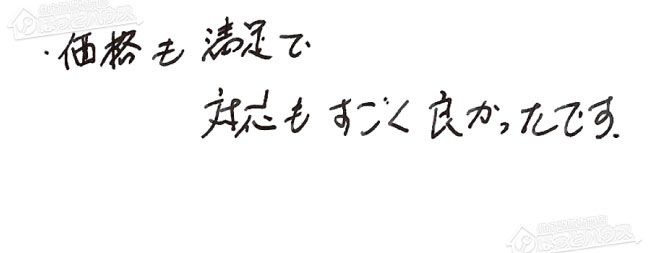 ・価格も満足で
対応もすごく良かったです。